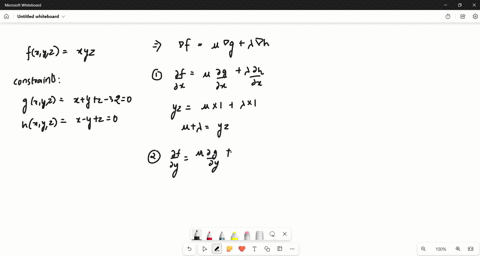 Microsoft Whiteboard
Untitled whiteboard
f(x,y,z) = xyz
constraint:
g(x,y,z) = x+y+z-32=0
h(x,y,z) = x-y+z=0
⇒ ∇f = μ∇g + λ∇h
① ∂f/∂x = μ ∂g/∂x + λ ∂h/∂x
yz = μ×1 + λ×1
μ+λ = yz
② ∂f/∂y = μ ∂g/∂y +
100%